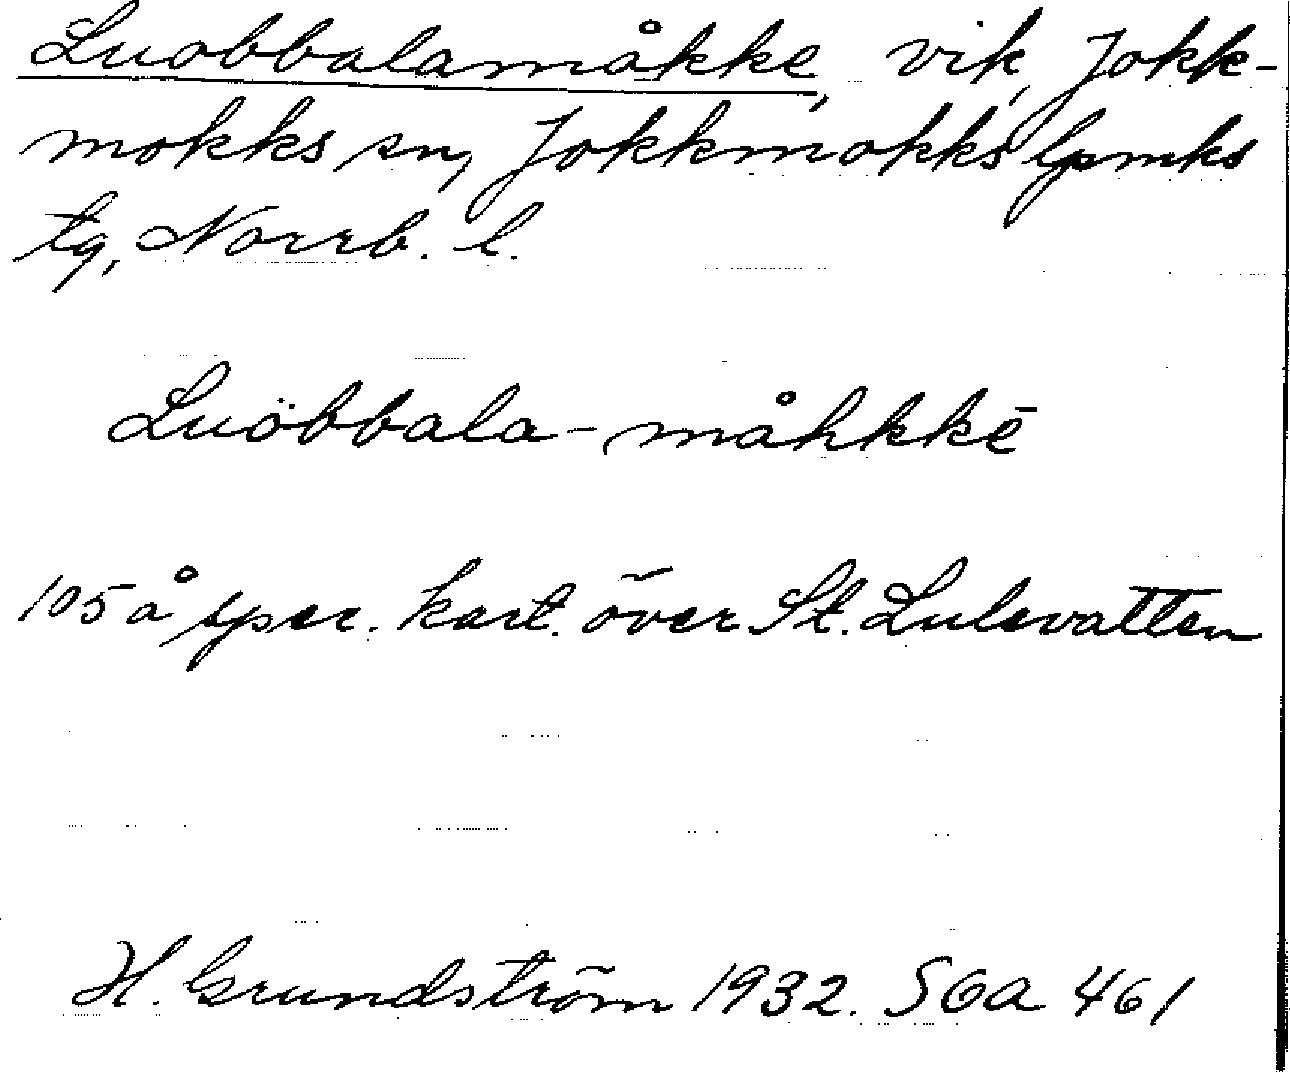 Luobbalamåkke, vik, Jokk-
mokks sn, Jokkmokks lpmks
tg, Norrb. l.
Luöbbala-måhkkē
105 å spec. kart. över St. Lulevatten
H. Grundström 1932. SOA 461